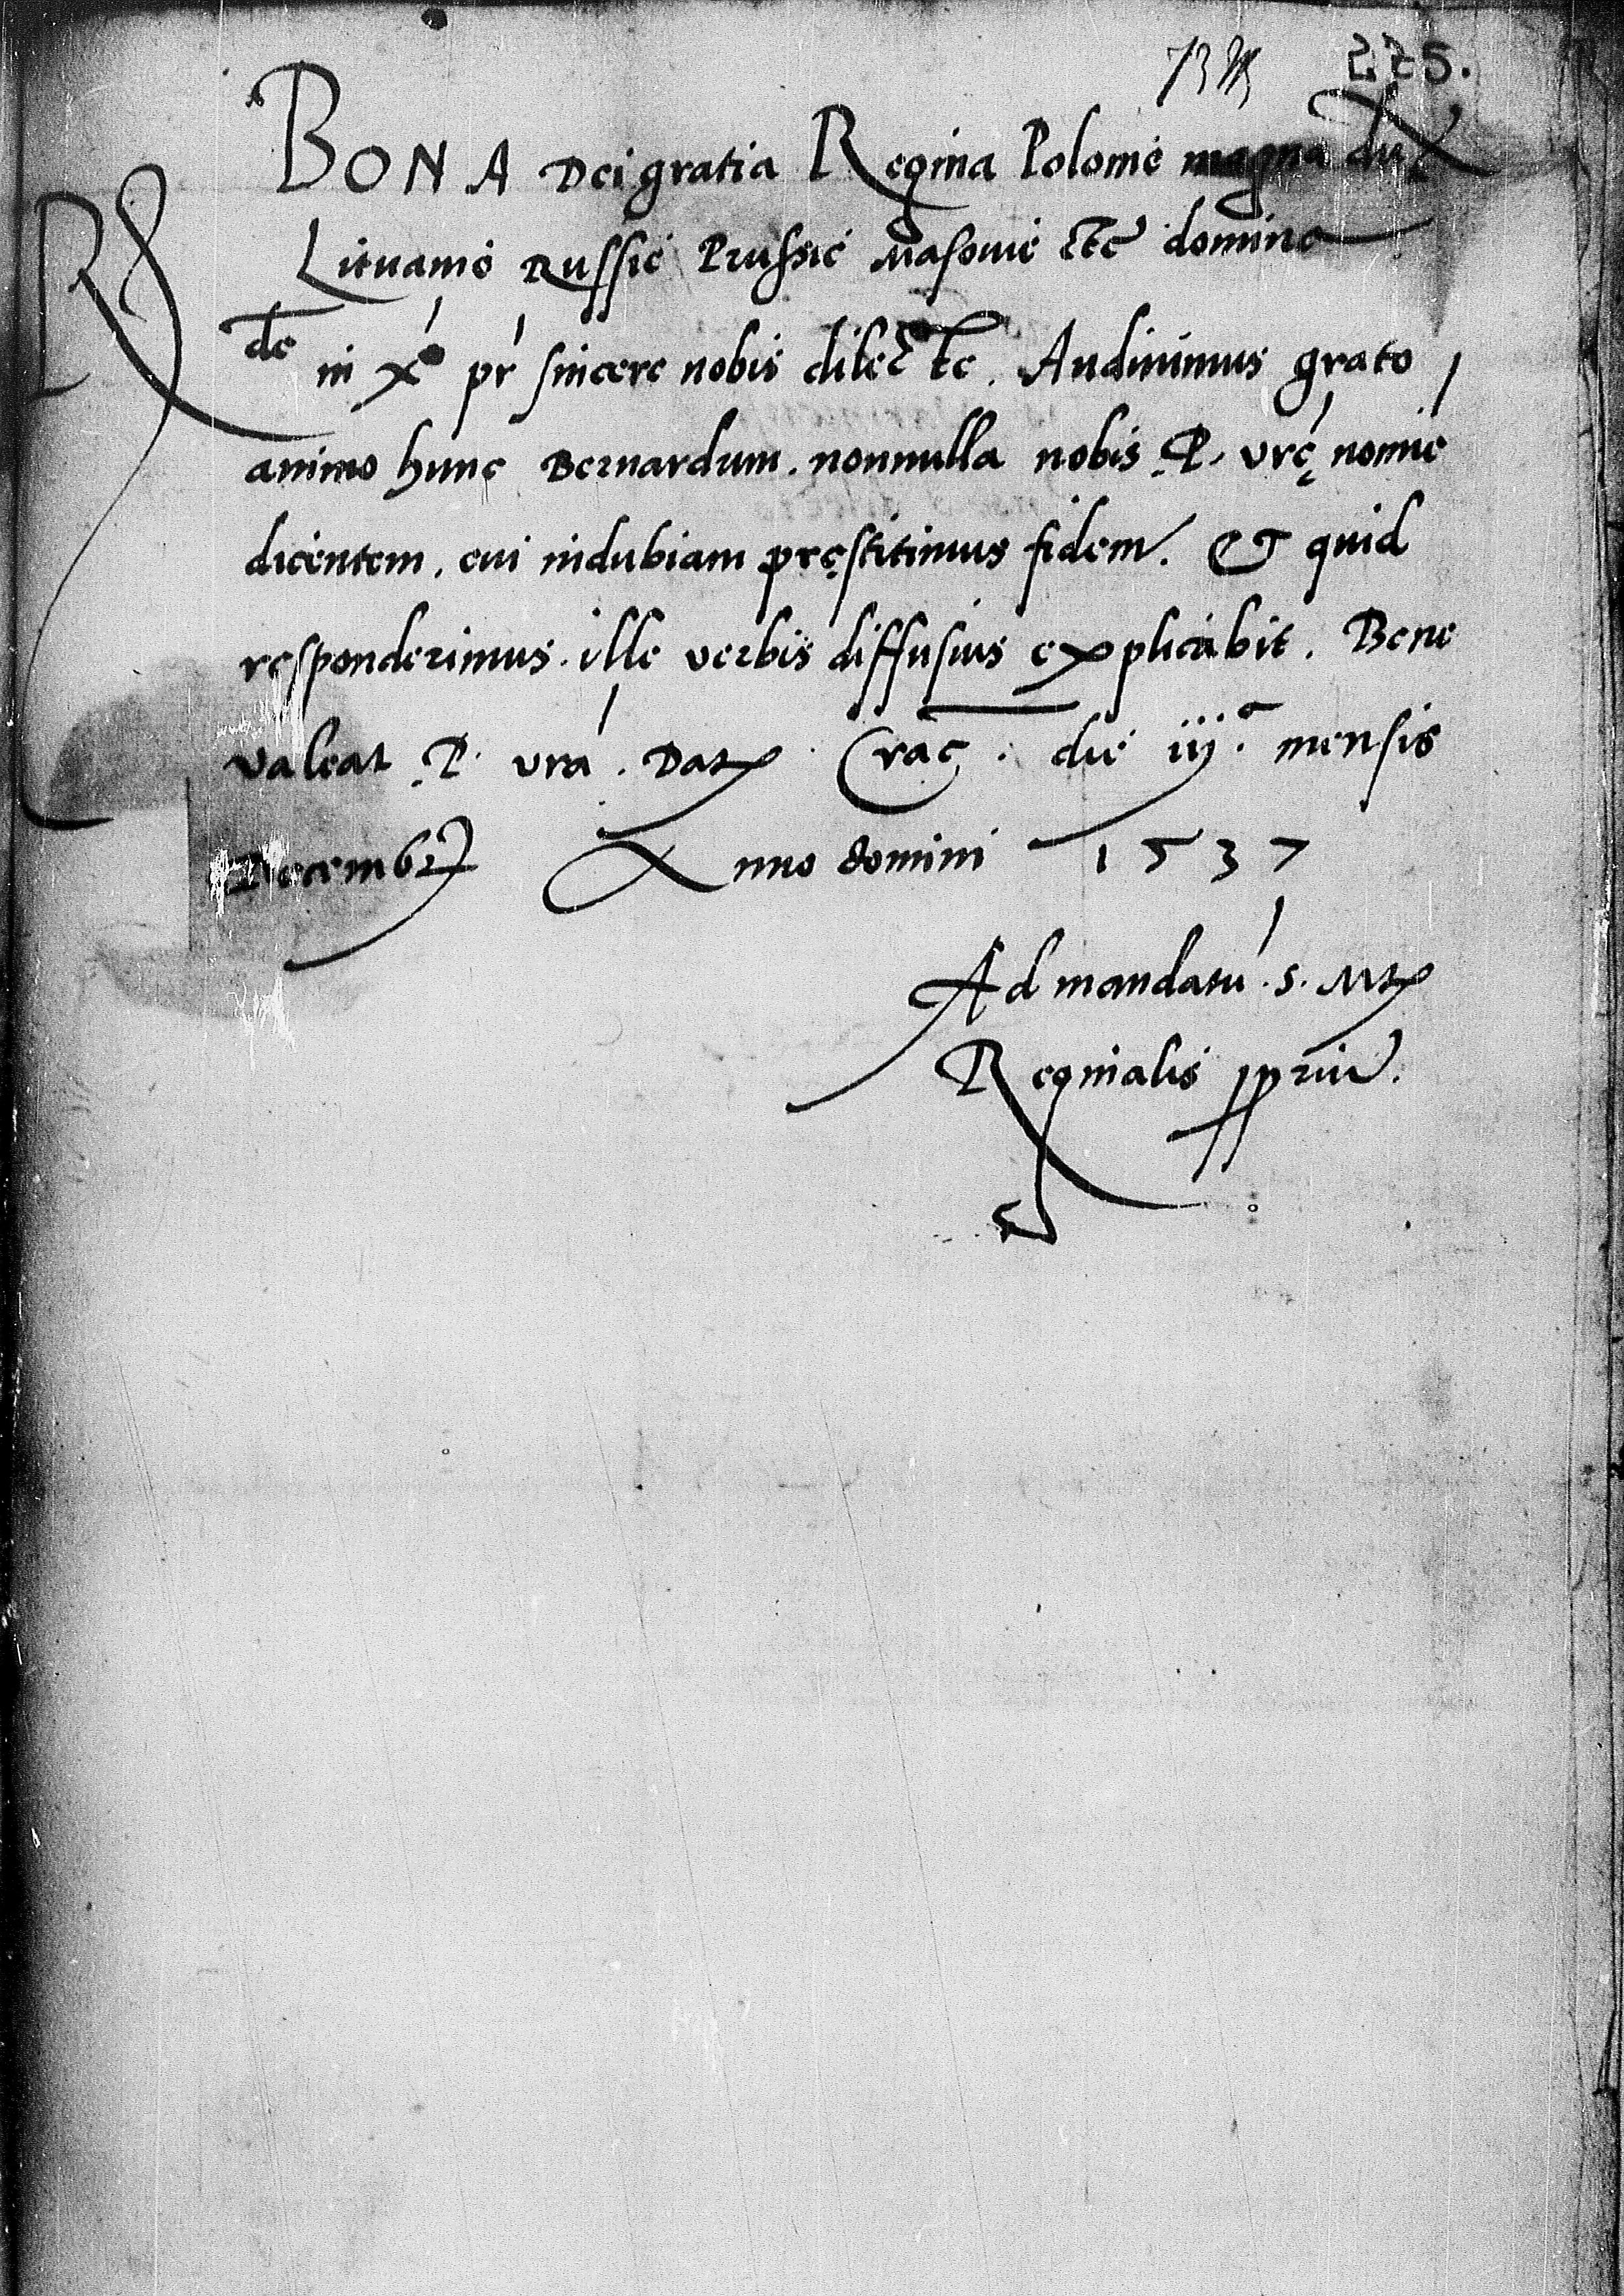 225.
BONA Dei gratia Regina Polonie magna dux
Lituanie Russie Prussie Masovie etc domina
Rde in Xo pr sincere nobis dilecte. Audivimus grato
animo hunc Bernardum. nonnulla nobis P. vrę nomie
dicentem, cui indubiam pręstitimus fidem. Et quid
responderimus. ille verbis diffusius explicabit. Bene
valeat P. vra. Dat Crac. die iij.a mensis
Decembr Anno domini 1537
Ad mandatu. S. Mt
Reginalis ppriu.